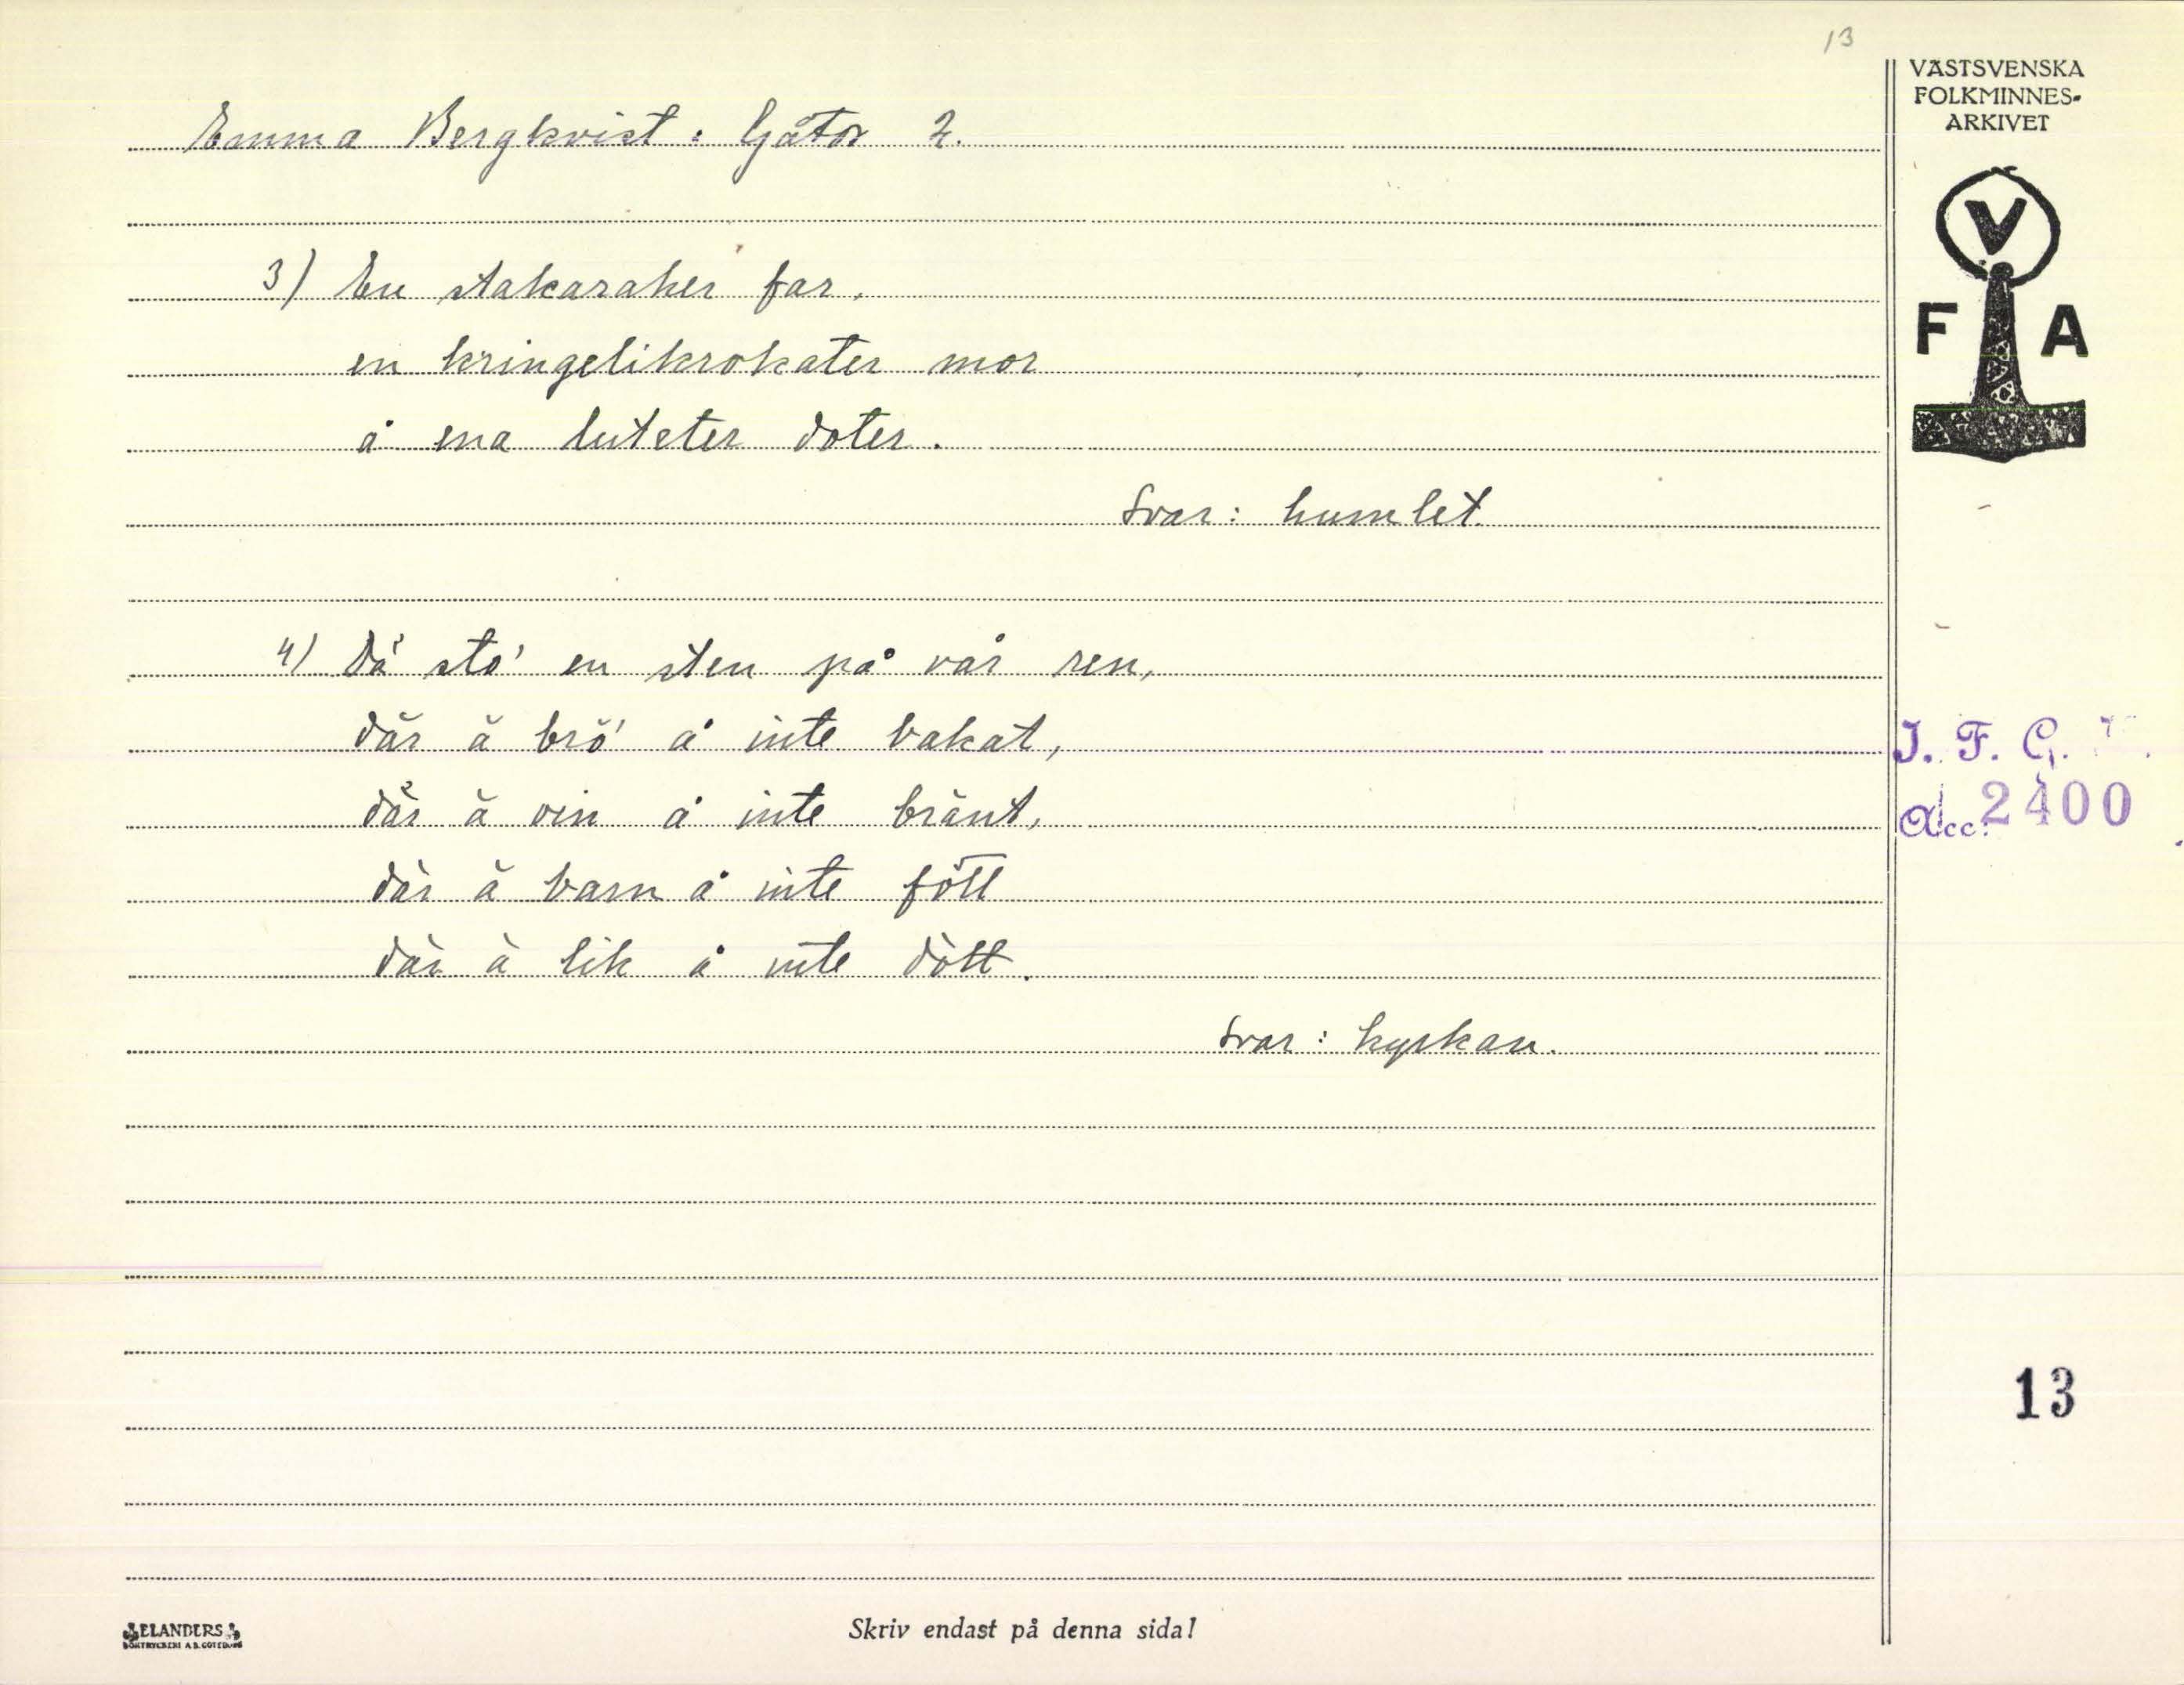 13
VÄSTSVENSKA
FOLKMINNES-
ARKIVET
V
F A
Emma Bergkvist: Gåtor 2.
3) En stakaraker far.
en kringelikrokater mor
å ena luteter doter.
Svar: humlet.
4) Dä sto' en sten på vår ren,
där ä brö' å inte bakat,
där ä vin å inte bränt,
där ä barn å inte fött
där ä lik å inte dött.
Svar: kyrkan.
I. F. G.
Acc. 2400
13
ELANDERS
BOKTRYCKERI A.B. GÖTEBORG
Skriv endast på denna sida!